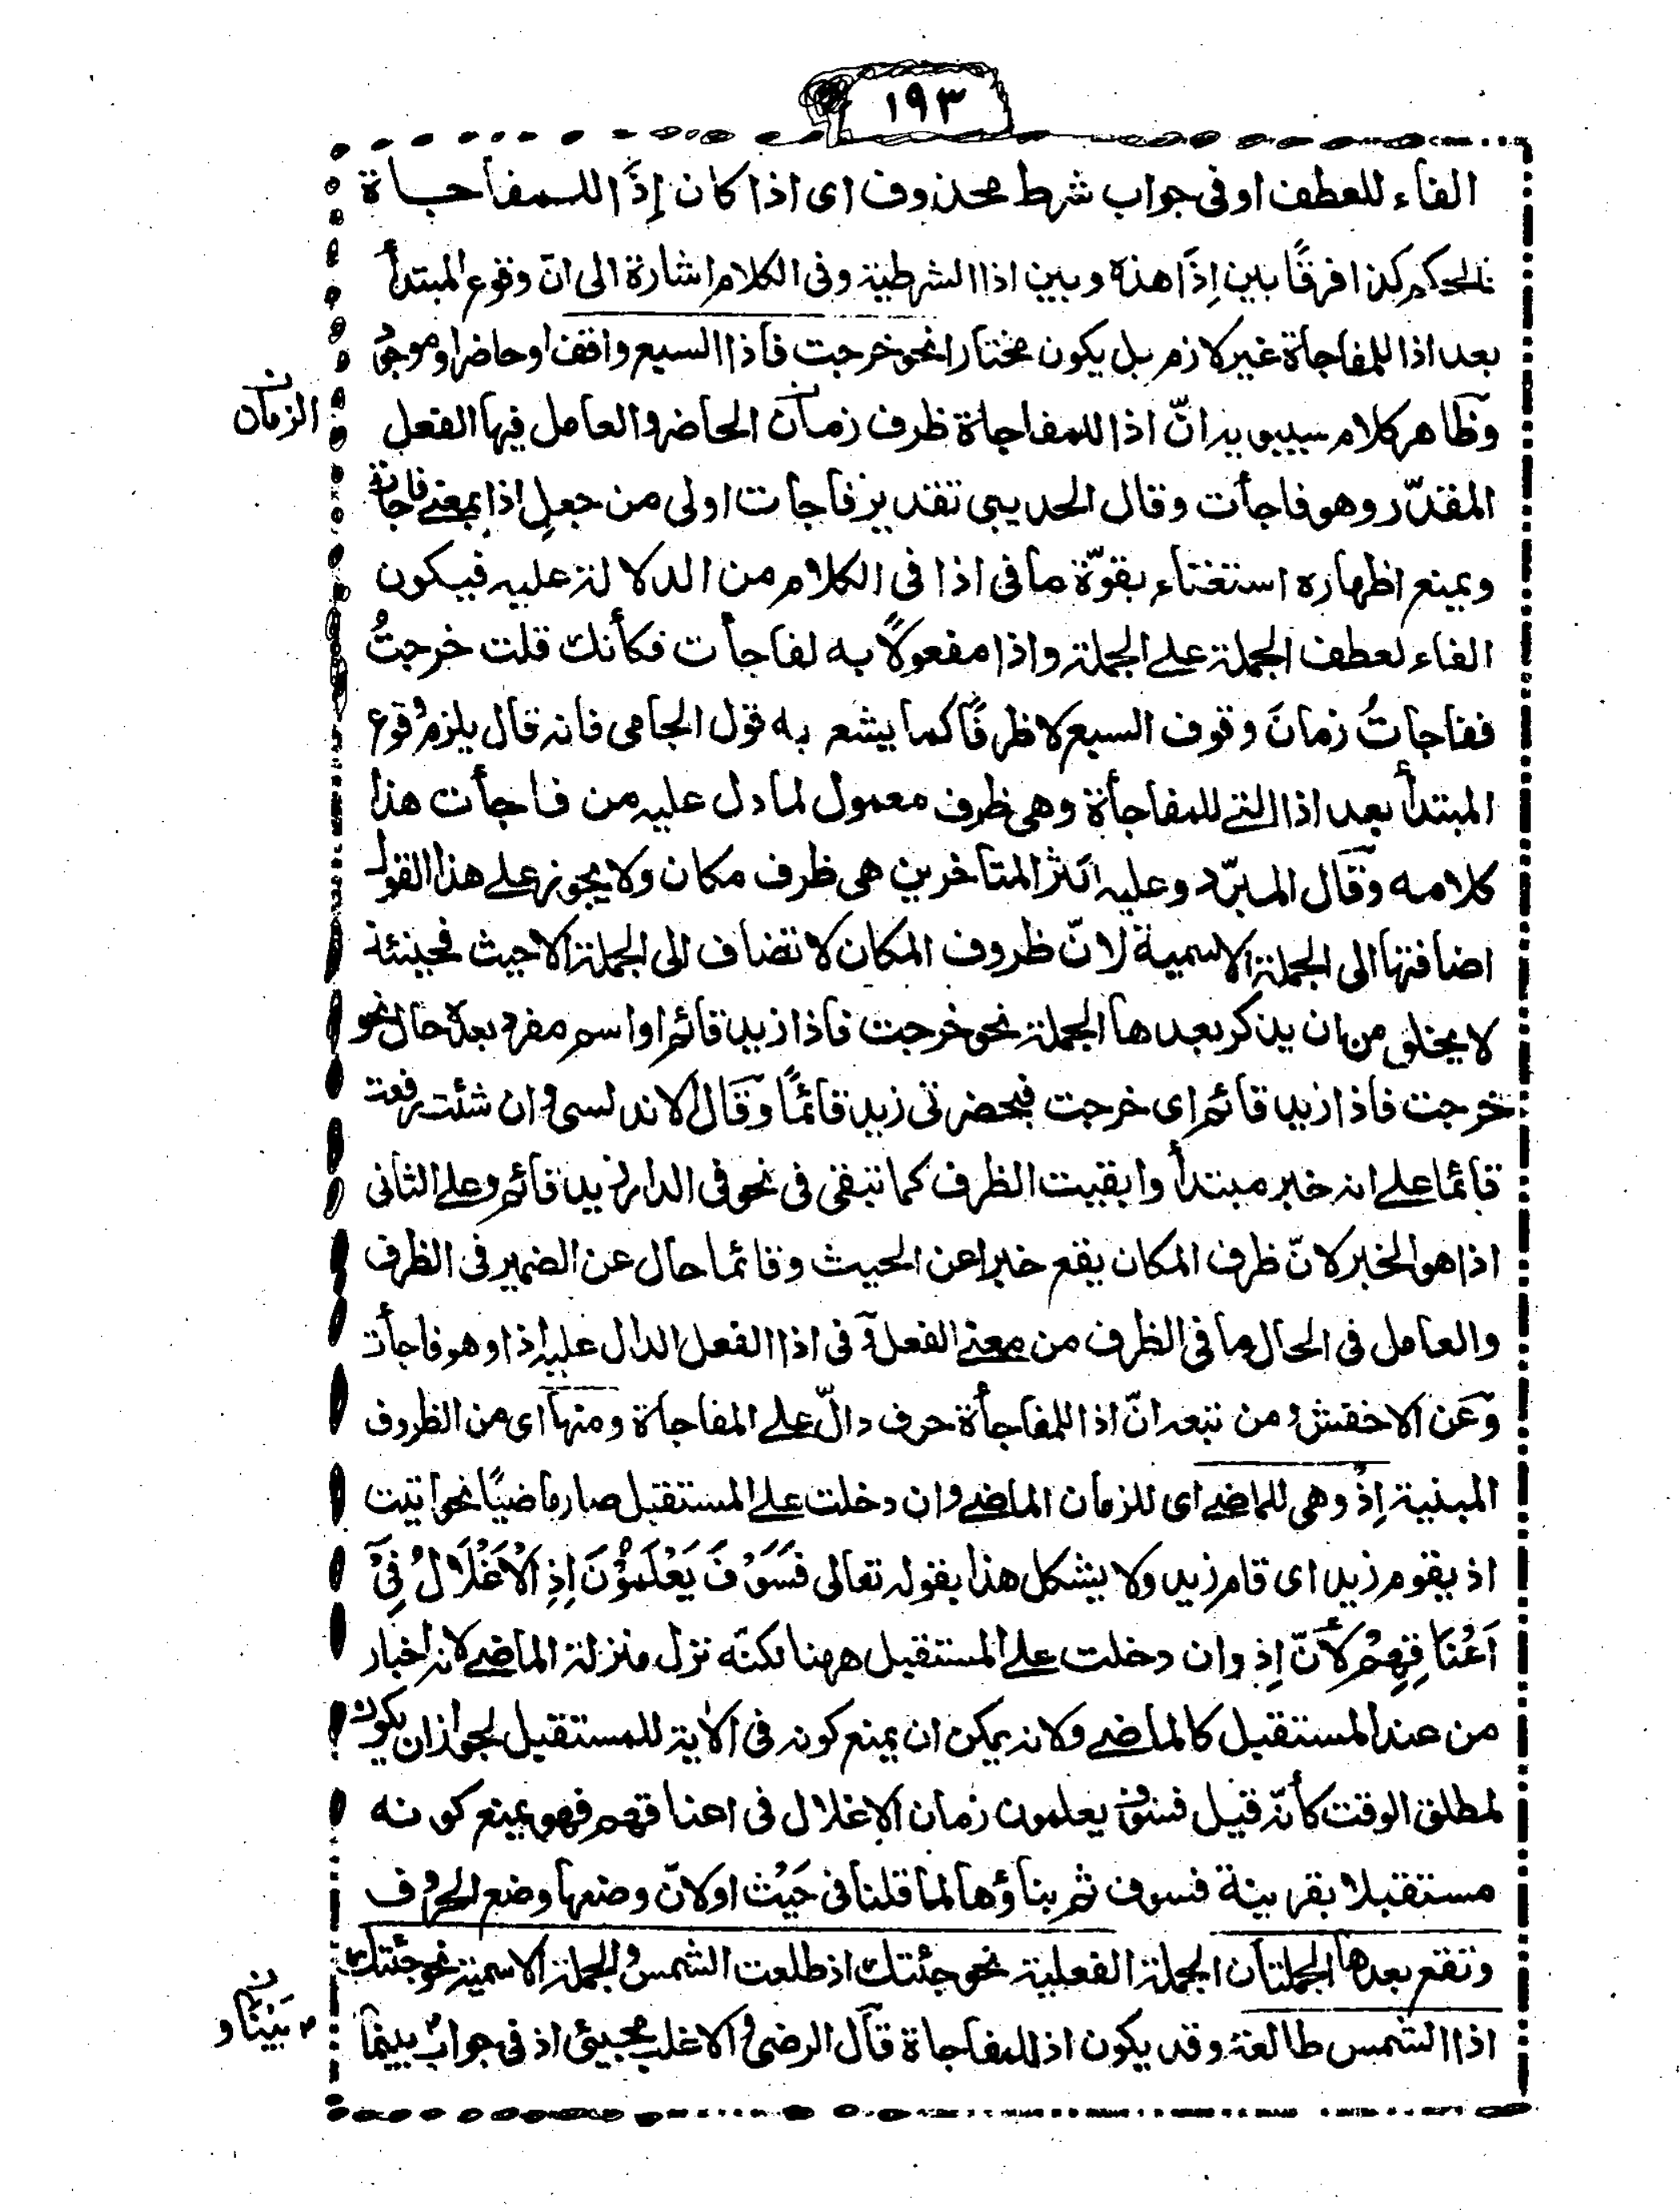 ١٩٣
الفاء للعطف او فى جواب شرط محذوف اى اذا كان إذَا للمفاجاة
فالحكم كذا فرقًا بين إذَا هذه وبين اذا الشرطية وفى الكلام اشارة الى انّ وقوع المبتدأ
بعد اذا للمفاجاة غير لازم بل يكون مختارا نحو خرجت فاذا السبع واقف او حاضر او موجود
وظاهر كلام سيبويه انّ اذا للمفاجاة ظرف زمان الحاضر والعامل فيها الفعل
الزمان
المقدّر وهو فاجأت وقال الحديبى تقدير فاجات اولى من جعل اذا بمعنى فاجاة
ويمنع اظهاره استغناء بقوّة ما فى اذا فى الكلام من الدلالة عليه فيكون
الفاء لعطف الجملة على الجملة واذا مفعولًا به لفاجأت فكأنك قلت خرجتُ
ففاجاتُ زمانَ وقوف السبع لا ظرفًا كما يشعر به قول الجامى فانه قال يلزم وقوع
المبتدأ بعد اذا التى للمفاجأة وهى ظرف معمول لما دل عليه من فاجأت هذا
كلامه وقال المبرّد وعليه اكثر المتاخرين هى ظرف مكان ولا يجوز على هذا القول
اضافتها الى الجملة الاسمية لانّ ظروف المكان لا تضاف الى الجملة الا حيث فحينئذ
لا يخلو من ان يذكر بعدها الجملة نحو خرجت فاذا زيد قائم او اسم مفرد بعده حال نحو
خرجت فاذا زيد قائم اى خرجت فبحضرتى زيد قائمًا وقال الاندلسى وان شئت رفعت
قائما على انه خبر مبتدأ وابقيت الظرف كما تبقى فى نحو فى الدار زيد قائم وعلى الثانى
اذا هو الخبر لانّ ظرف المكان يقع خبرا عن الحيث وقائما حال عن الضمير فى الظرف
والعامل فى الحال ما فى الظرف من معنى الفعل وفى اذا الفعل الدال عليه اذا وهو فاجأت
وعن الاخفش ومن تبعه انّ اذا للمفاجأة حرف دالّ على المفاجاة ومنها اى من الظروف
المبنية إذْ وهى للماضى اى للزمان الماضى وان دخلت على المستقبل صار ماضيًا نحو اتيت
اذ يقوم زيد اى قام زيد ولا يشكل هذا بقوله تعالى فَسَوْفَ يَعْلَمُوْنَ اِذِ الْاَغْلَالُ فِىْ
اَعْنَاقِهِمْ لأنّ إذ وان دخلت على المستقبل ههنا لكنّه نزل منزلة الماضى لانه اخبار
من عند المستقبل كالماضى ولانه يمكن ان يمنع كونه فى الاية للمستقبل لجواز ان يكون
لمطلق الوقت كأنّه قيل فسوف يعلمون زمان الاغلال فى اعناقهم فهو يمنع كونه
مستقبلا بقرينة فسوف ثم بناؤها لما قلنا فى حَيْث او لانّ وضعها وضع الحروف
وتقع بعدها الجملتان الجملة الفعلية نحو جئتك اذ طلعت الشمس والجملة الاسمية نحو جئتك
اذا الشمس طالعة وقد يكون اذ للمفاجاة قال الرضى والاغلب مجيئ اذ فى جواب بينما
بَيْنَا و